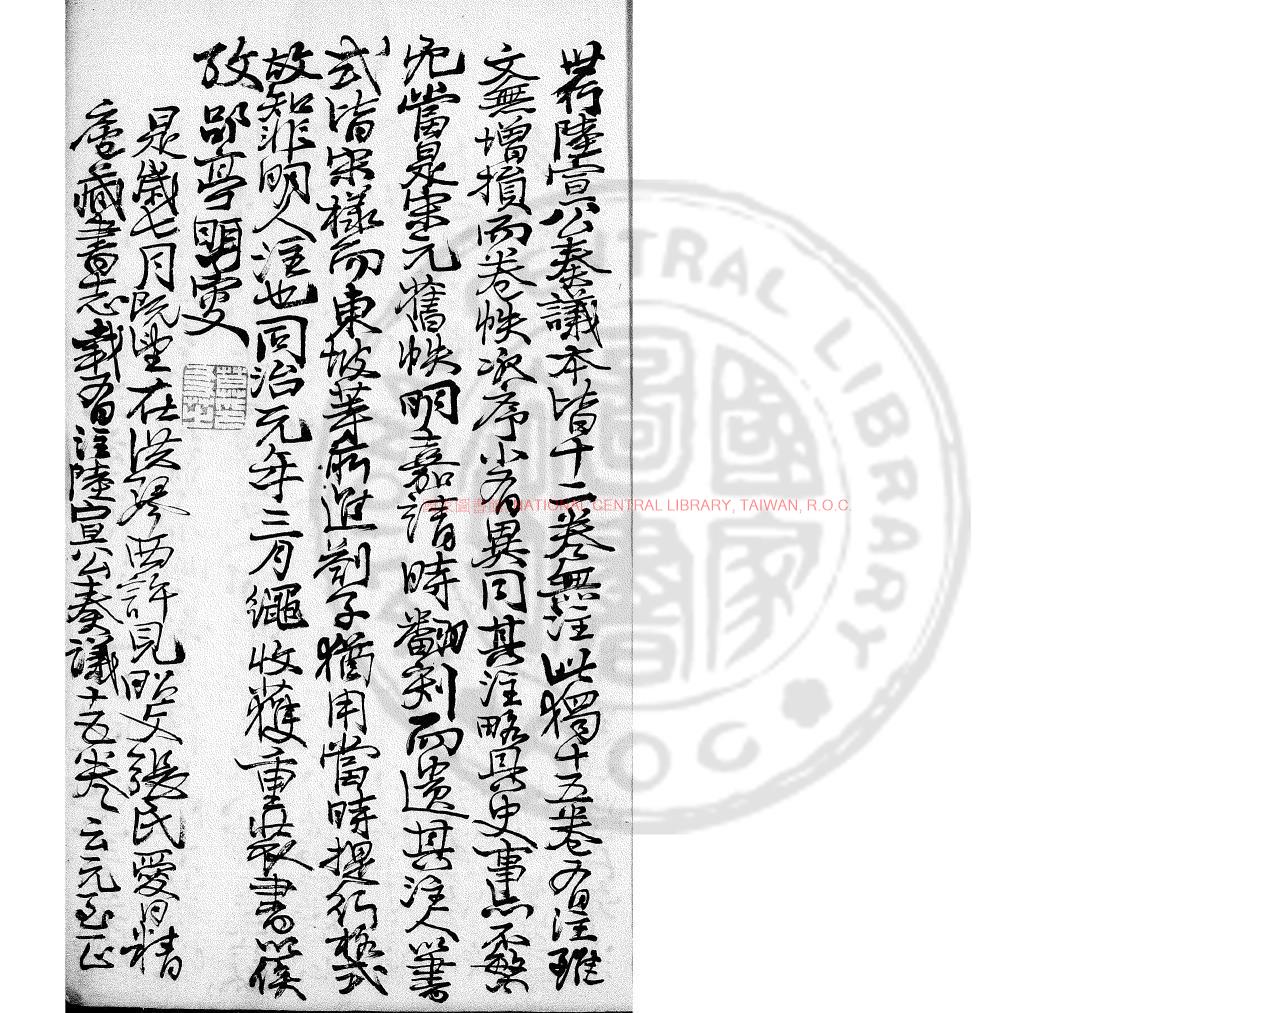 世行陸宣公奏議本皆十二卷無注此獨十五卷有注雖
文無增損而卷帙次序小有異同其注略具史事亦不繁
冗當是宋元舊帙明嘉靖時翻刻而遺其注人以書
式皆宋樣而東坡等奏進劄子猶用當時提行格式
故知非明人注也同治元年三月繩收獲重裝書以俟
攷 郘亭眲叟
是歲七月既望在洪琴西許見昭文張氏愛日精
廬藏書志載有注陸宣公奏議十五卷云元至正
國家圖書館 NATIONAL CENTRAL LIBRARY, TAIWAN, R.O.C.
CENTRAL LIBRARY
ROC